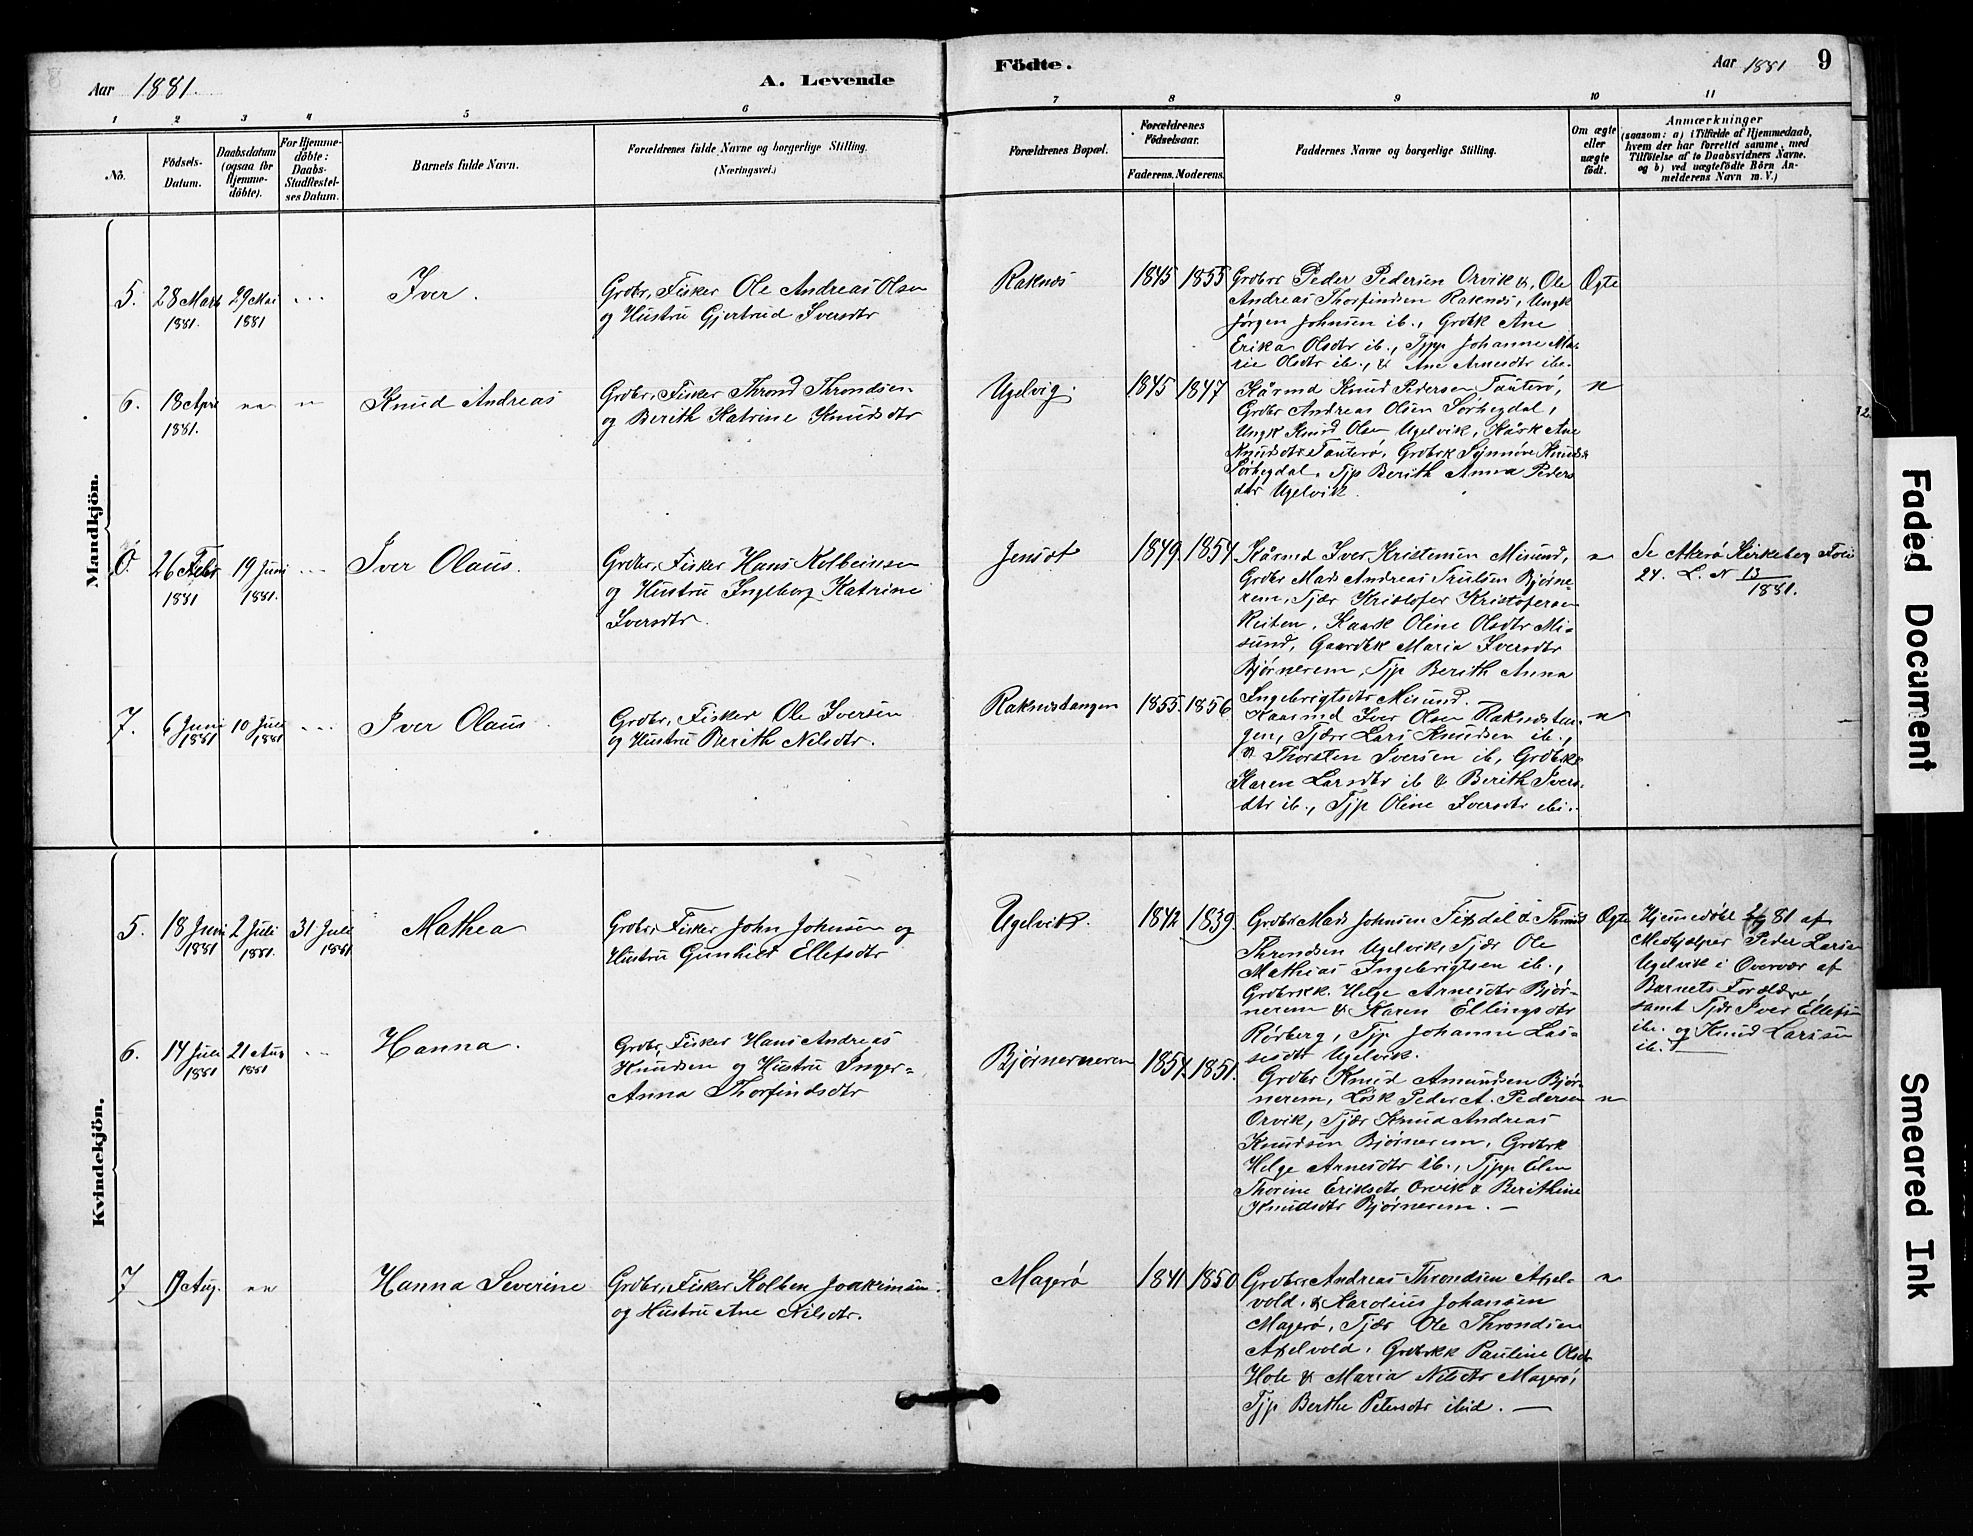 Aar 1881.
A. Levende
Födte.
Aar 1881
9
1 2 3 4 5 6 7 8 9 10 11
No.
Födsels-
Datum.
Daabsdatum
(ogsaa for
Hjemme-
döbte).
For Hjemme-
döbte:
Daabs-
Stadfæstel-
ses Datum.
Barnets fulde Navn.
Forældrenes fulde Navne og borgerlige Stilling.
(Næringsvei.)
Forældrenes Bopæl.
Forældrenes
Födselsaar.
Faderens. Moderens.
Faddernes Navne og borgerlige Stilling.
Om ægte
eller
uægte
födt.
Anmærkninger
(saasom: a) i Tilfælde af Hjemmedaab,
hvem der har forrettet samme, med
Tilföielse af to Daabsvidners Navne.
og b) ved uægtefödte Börn An-
melderens Navn m. V.)
Mandkjön.
5.
28 Marts
1881.
29 Mai
1881
Iver.
Grdbr, Fisker Ole Andreas Olsen
og Hustru Gjertrud Iversdtr
Raknes
1845 1855
Grdbrr Peder Pedersen Orvik &, Ole
Andreas Thorfindsen Raknes, Ungk
Jørgen Johnsen ib., Grdbk Ane
Erika Olsdtr ib., Tjpp Johanne Ma-
rie Olsdtr ib., & Ane Arnesdtr ibe.
Ogte
6.
18 Apr
1881.
Knud Andreas
Grdbr, Fisker Thrond Throndsen
og Berith Katrine Knudsdtr
Ugelvig.
1845 1847
Kårmd Knud Pedersen Tauterø,
Grdbr Andreas Olsen Sørhegdal,
Ungk Knud Olsen Ugelvik, Kårk Ane
Knudsdtr Tauterø, Grdbrk Synnøve Knudsd
Sørhegdal, Tjp Berith Anna Peders
dtr Ugelvik.
0.
26 Febr
1881
19 Juni
1881.
Iver Olaus.
Grdbr, Fisker Hans Kolbeinsen
og Hustru Ingeborg Katrine
Iversdtr.
Jenset
1849. 1854
Kårmd Iver Kristensen Misund,
Grdbr Mads Andreas Trulsen Bjørne-
rem, Tjær Kristofer Kristofersen
Reiten, Kaark Oline Olsdtr Mi-
sund, Gaardbk Maria Iversdtr
Bjørnerem, Tjp Berith Anna
Ingebrigtsdtr Misund.
Se Akerø Kirkebog Folio
24. L. N 13/1881.
7.
6 Juni
1881
10 Juli
1881
Iver Olaus.
Grdbr, Fisker Ole Iversen
og Hustru Berith Nilsdtr.
Raknestangen
1855. 1856.
Kaarmd Iver Olsen Raknestan-
gen, Tjær Lars Knudsen ib.,
& Thorsten Iversen ib, Grdbrkk
Karen Larsdtr ib & Berith Ivers-
dtr ib., Tjp Oline Iversdtr ibi.
Kvindekjön.
5.
18 Juni
1881
2 Juli
1881.
31 Juli
1881
Mathea
Grdbr, Fisker John Johnsen og
Hustru Gunhild Ellefsdtr
Ugelvik.
1842 1839.
Grdbr Mads Johnsen Fixdel &
Throndsen Ugelvik, Tjær Ole
Mathias Ingebrigtsen ib.,
Grdbrkk. Helge Arnesdtr Bjør-
nerem & Karen Ellingsdtr
Rørberg, Tjp Johanne Las-
sesdtr Ugelvik.
Ogte
Hjemmedøbt 2/7 81 af
Medhjælper Peder Larsen
Ugelvik i Overvær af
Barnets Forældre,
samt Tjær Iver Ellefsen
ibe. og Knud Larssen
ib.
6.
14 Juli
1881
21 Aug
1881
Hanna.
Grdbr, Fisker Hans Andreas
Knudsen og Hustru Inger-
Anna Thorfindsdtr
Bjørnerneren
1854. 1851.
Grdbr Knud Amundsen Bjør-
nerem, Løsk Peder A. Pedersen
Orvik, Tjær Knud Andreas
Knudsen Bjørnerem, Grdbrk
Helge Arnesdtr ib., Tjpp Elen
Thorine Eriksdtr Orvik & Berithine
Knudsdtr Bjørnerem. —
7
19 Aug.
Hanna Severine
Grdbr, Fisker Kolben Joakimsen.
og Hustru Ane Nilsdtr.
Magerø
1841 1850
Grdbrr Andreas Throndsen Axel-
vold, & Karolius Johansen
Magerø, Tjær Ole Throndsen
Axelvold, Grdbrkk Pauline Olsdr
Hole & Maria Nilsdtr Magerø,
Tjp Berthe Petersdtr ibid. —
Faded Document
Smeared Ink